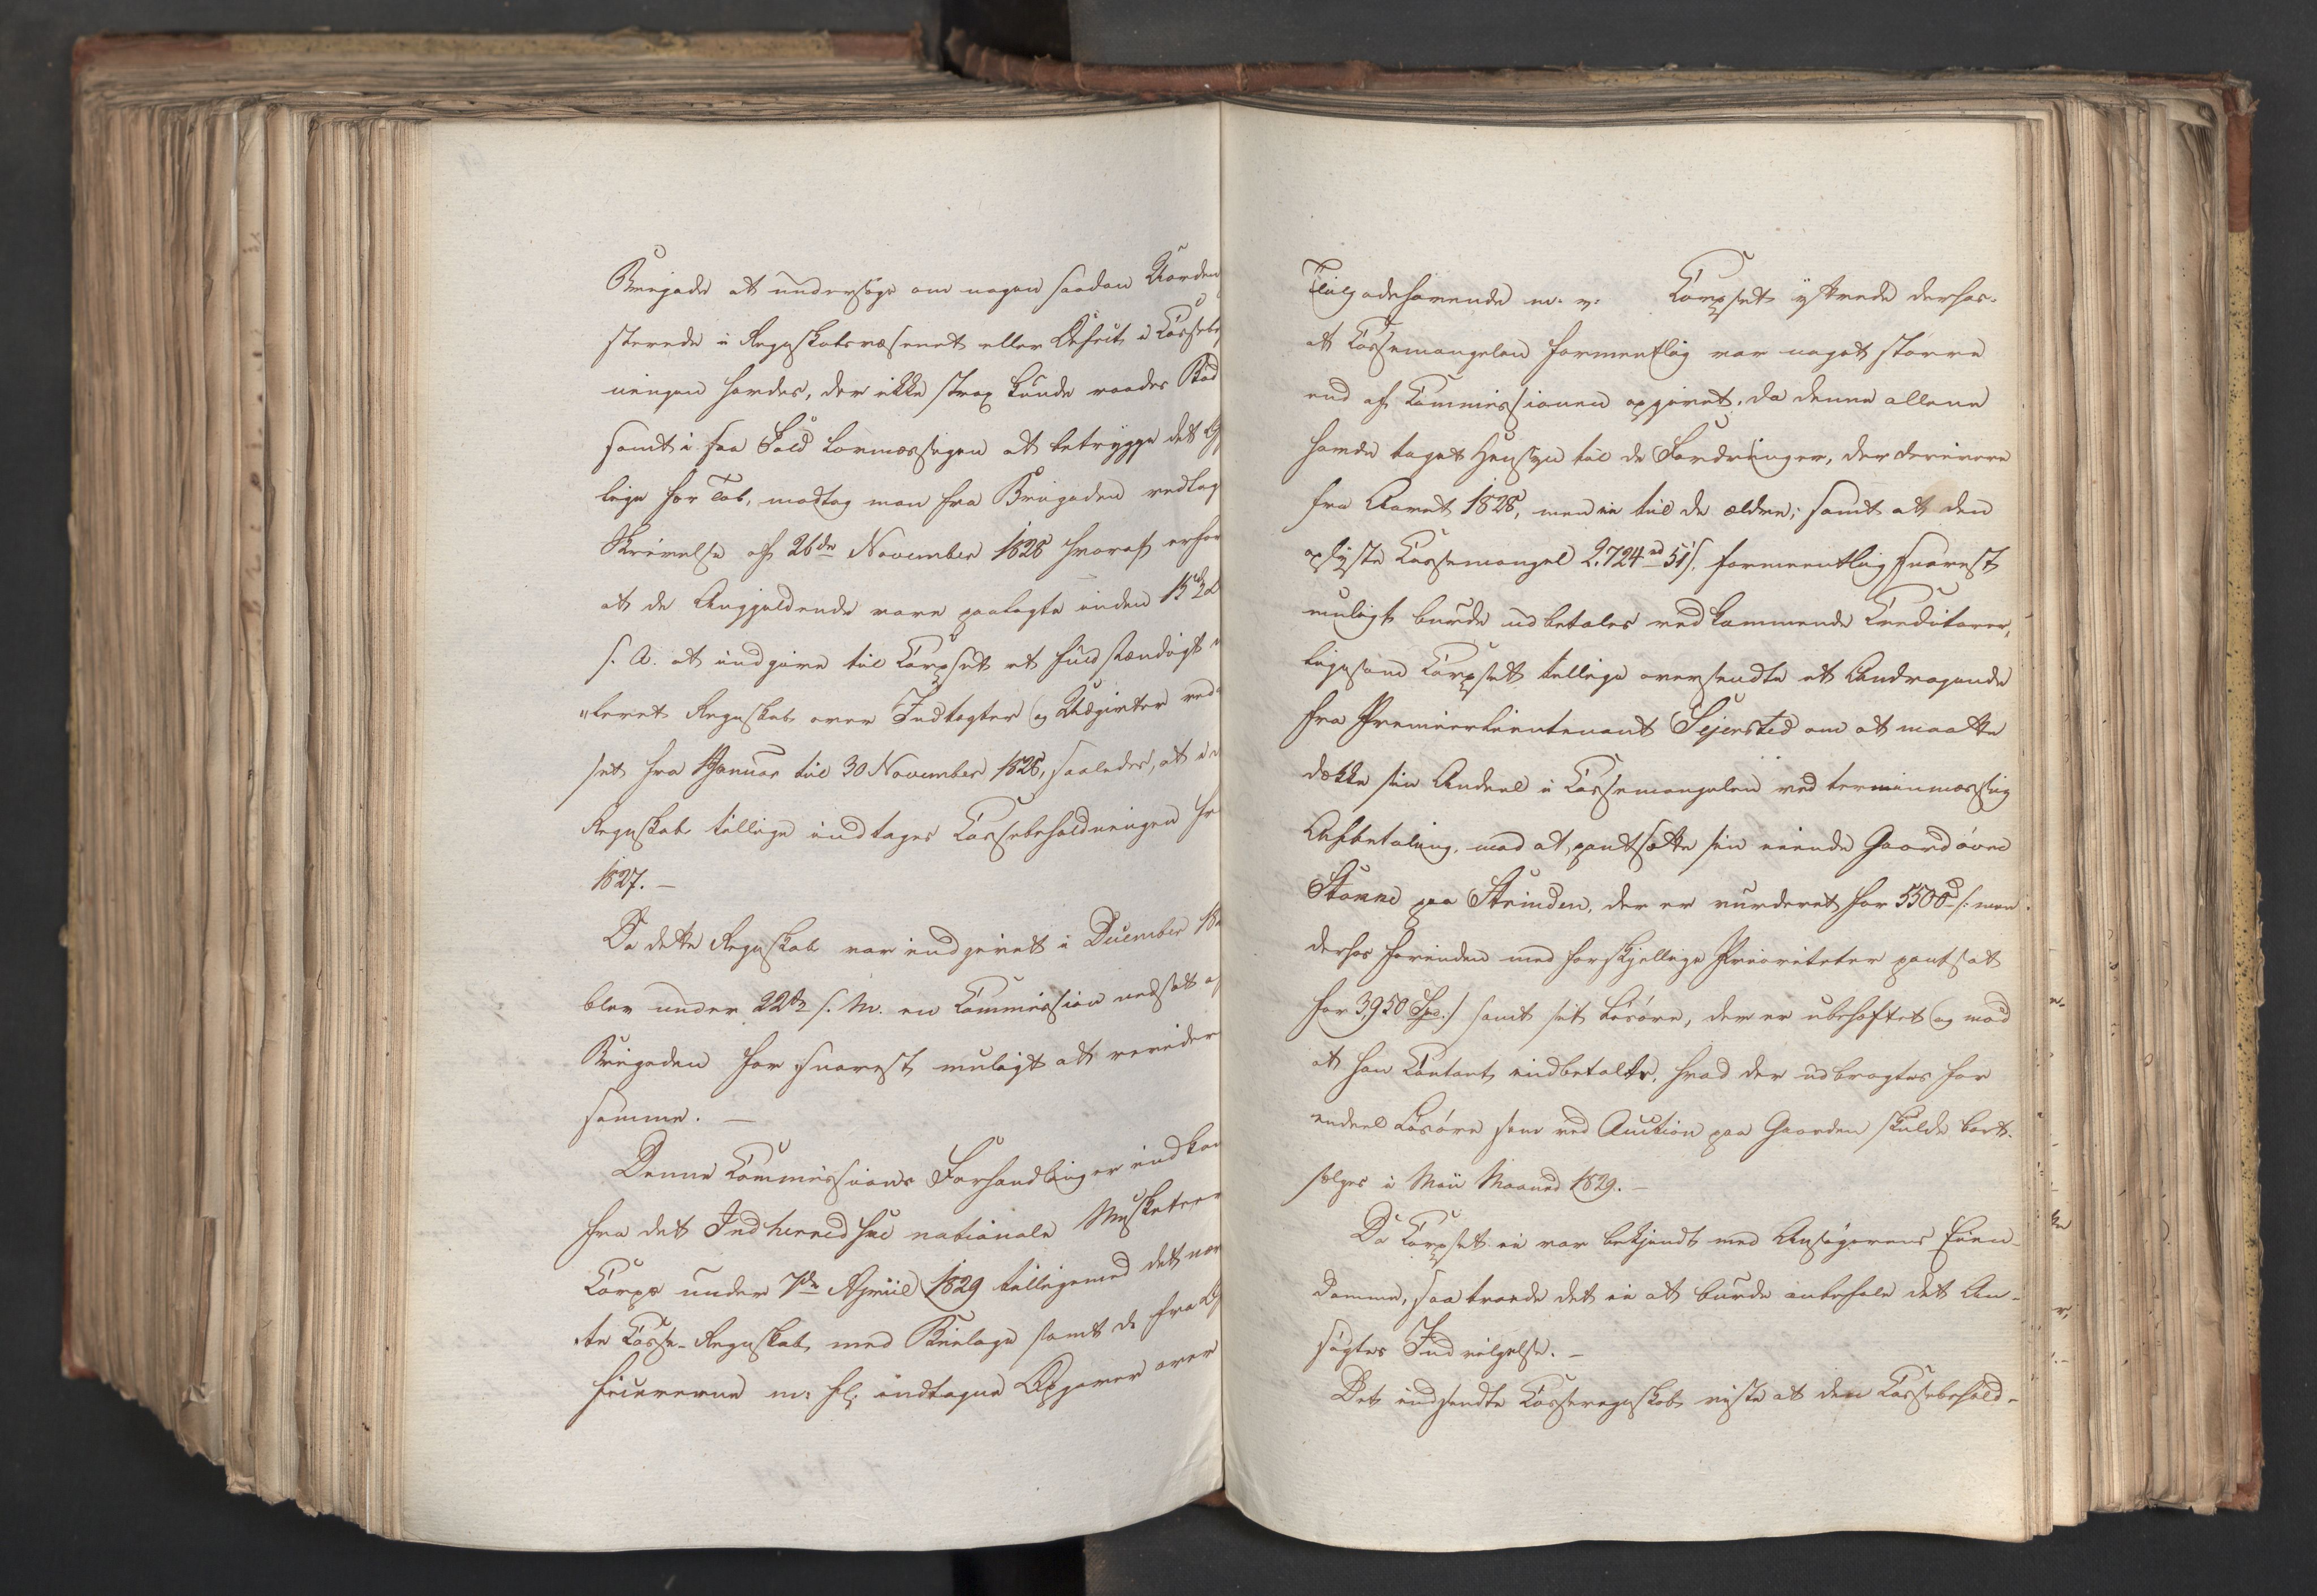 Brigade at undersøge om nogen saadan Uorden
sterede i Regnskabsvæsenet eller Deficit i Cassebe
ningen havdes, der ikke strax kunde raades Bod
samt i saa Fald lovmæssigen at betrygge det
lige for Tab, modtog man fra Brigaden vedlag
Skrivelse af 26de November 1828 hvoraf erfar
at de Angjeldende vare paalagte inden 15de
s. A. at indgive til Corpset et fuldstændigt
leret Regnskab over Indtægter og Udgivter ved
set fra 1 Januar til 30 November 1828, saaledes, at i
Regnskab tillige indtages Cassebeholdningen fr
1827. –
Da dette Regnskab var indgivet i December 18
blev under 22de s. M. en Commission nedsat af
Brigaden for snarest muligt at revider
samme. –
Denne Commissions Forhandlinger indkom
fra det Indherredske nationale Musketeer
Corps under 7de Apriil 1829 tilligemed det
te Casse-Regnskab med Bielage samt de fra
ficiererne m: fl: indtagne Opgaver over
Tilgodehavende m. v: Corpset yttrede derhos.
at Cassemangelen formentlig var noget større
end af Commissionen opgivet, da denne allene
havde taget Hensyn til de Fordringer, der derivere
fra Aaret 1828, men ei til de ældre; samt at den
oplyste Cassemangel 2,724 rd 51 s. formeentlig snarest
muligt burde udbetales vedkommende Creditorer,
ligesom Corpset tillige oversendte et Andragende
fra Premierlieutenant Sejersted om at maatte
dække sin Andeel i Cassemangelen ved terminmæssig
Afbetaling, mod at pantsætte sin eiende Gaard øvre
Stavne paa Strinden, der er vurderet for 5500 d /: men
derhos forinden med forskjellige Prioriteter pantsat
for 3,950 Spd. :/ samt sit Løsøre, der er ubeheftet og mod
at han Contant indbetalte, hvad der udbragtes for
endeel Løsøre som ved Auction paa Gaarden skulde bort-
sælges i Mai Maaned 1829. –
Da Corpset ei var bekjendt med Ansøgerens Eien-
domme, saa troede det ei at burde anbefale det An-
søgtes Indvilgelse. –
Det indsendte Casseregnskab viste at den Cassebehold-